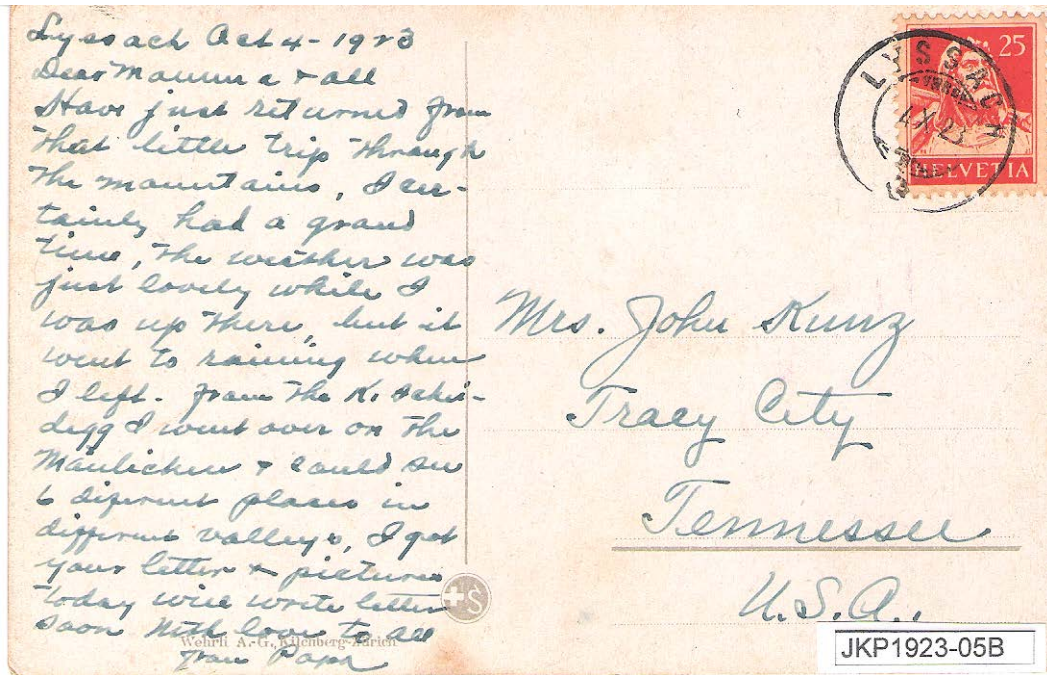 Lyssach Oct 4 - 1923
Dear Mamma & all
Have just returned from
that little trip through
the mountains, I cer-
tainly had a grand
time, the weather was
just lovely while I
was up there, but it
went to raining when
I left. From the Kl. Schei-
degg I went over on the
Mänlichen & could see
6 diferent places in
different valleys, I got
your letter & pictures
today will write letter
soon With love to all
from Papa
Wehrli A.-G., Kilchberg-Zürich
LYSSACH
4.X.23
25
HELVETIA
Mrs. John Kunz
Tracy City
Tennessee
U.S.A.
JKP1923-05B